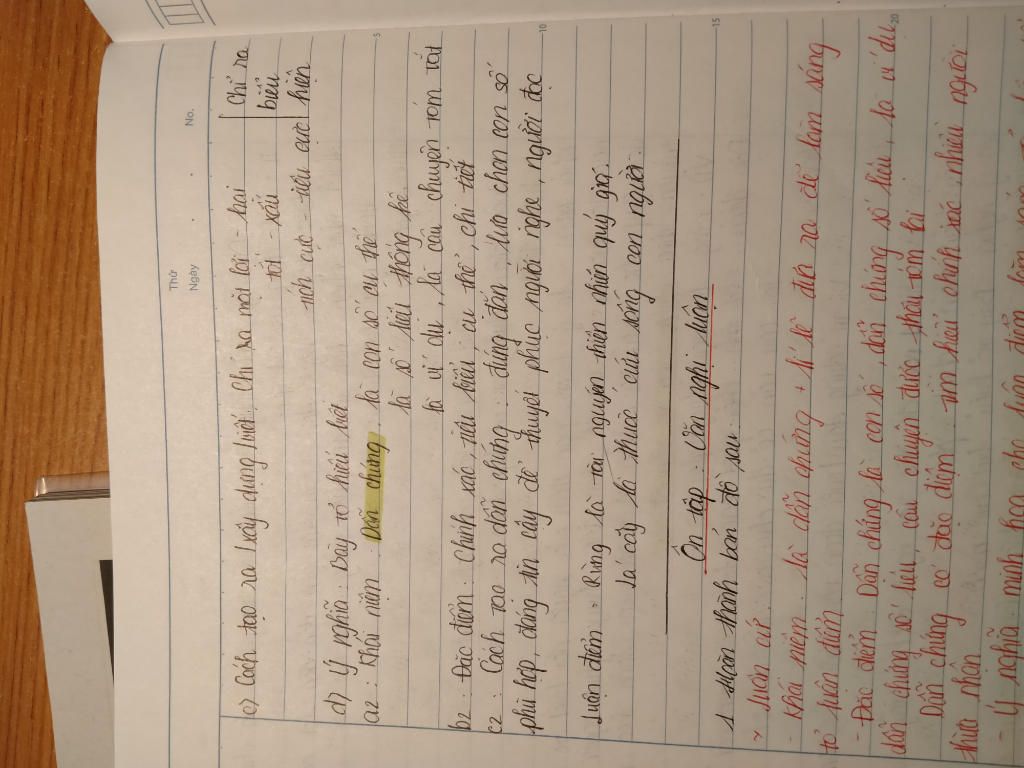 Thứ
Ngày . . No.
c) Cách tạo ra / xây dựng lí lẽ: Chỉ ra mặt lợi - hại | Chỉ ra
tốt - xấu | biểu
tích cực - tiêu cực | hiện
d) Ý nghĩa: Bày tỏ hiểu biết
a2: Khái niệm: Dẫn chứng: là con số cụ thể
là số liệu thống kê
là ví dụ, là câu chuyện tóm tắt
b2: Đặc điểm: Chính xác, tiêu biểu, cụ thể, chi tiết
c2: Cách tạo ra dẫn chứng: đúng đắn, lựa chọn con số
phù hợp, đáng tin cậy để thuyết phục người nghe, người đọc
Luận điểm: Rừng là tài nguyên thiên nhiên quý giá.
Lá cây là thuốc cứu sống con người.
Ôn tập: Văn nghị luận
1. Hoàn thành bản đồ sau.
* Luận cứ:
- Khái niệm: là dẫn chứng + lí lẽ đưa ra để làm sáng
tỏ luận điểm
- Đặc điểm: Dẫn chứng là con số, dẫn chứng số liệu, là ví dụ,
dẫn chứng số liệu, câu chuyện được thâu tóm lại
Dẫn chứng có đặc điểm: tìm hiểu chính xác, nhiều người
thừa nhận
- Ý nghĩa: minh họa cho luận điểm
5
10
15
20